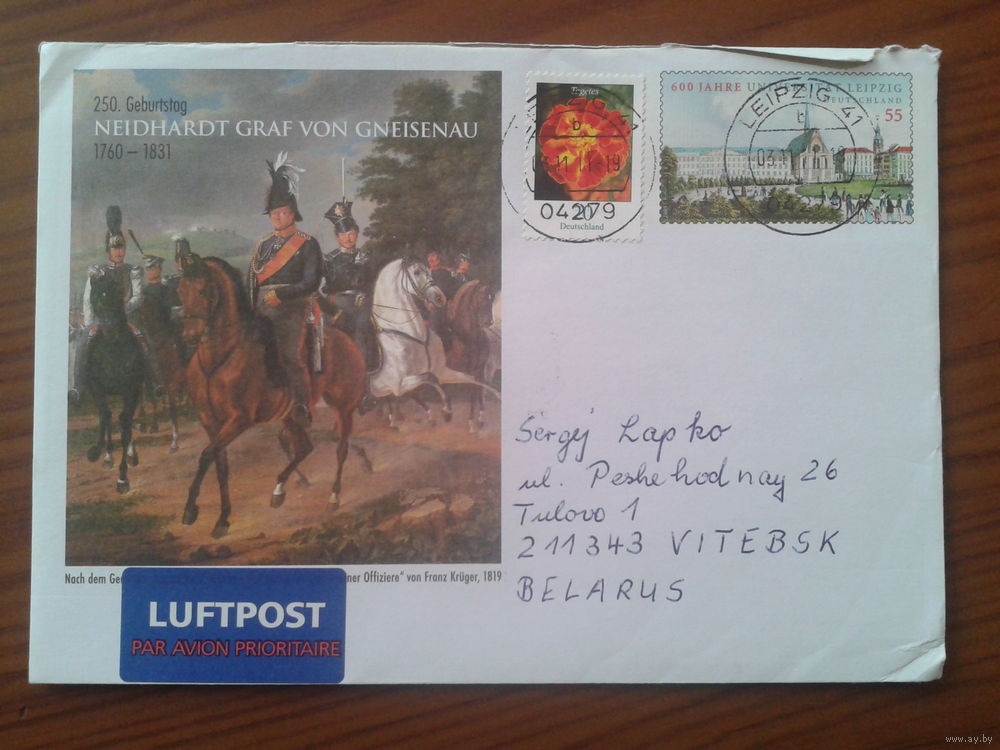 250. Geburtstag
NEIDHARDT GRAF VON GNEISENAU
1760 – 1831
Tagetes
20
Deutschland
LEIPZIG 41
b
04279
600 JAHRE UNIVERSITÄT LEIPZIG
DEUTSCHLAND
55
LEIPZIG 41
04279
Sergej Lapko
ul. Peshehodnay 26
Tulovo 1
211343 VITEBSK
BELARUS
Nach dem Ge ner Offiziere" von Franz Krüger, 1819
LUFTPOST
PAR AVION PRIORITAIRE
www.ay.by